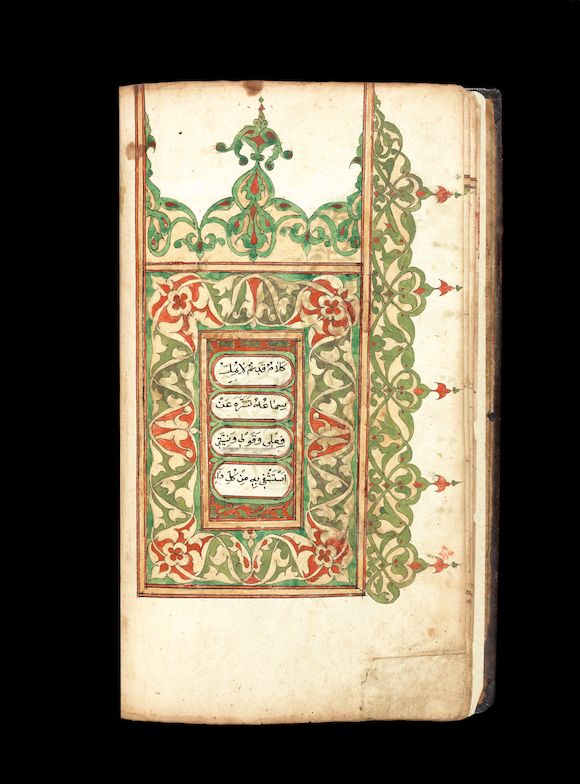 كَلَامٌ قَدِيمٌ لَا يُمَلُّ
سِمَاعُهُ تَنَزَّهَ عَنْ
فِعْلِي وَقَوْلِي وَنِيَّتِي
اَسْتَشْفِي بِهِ مِنْ كُلِّ